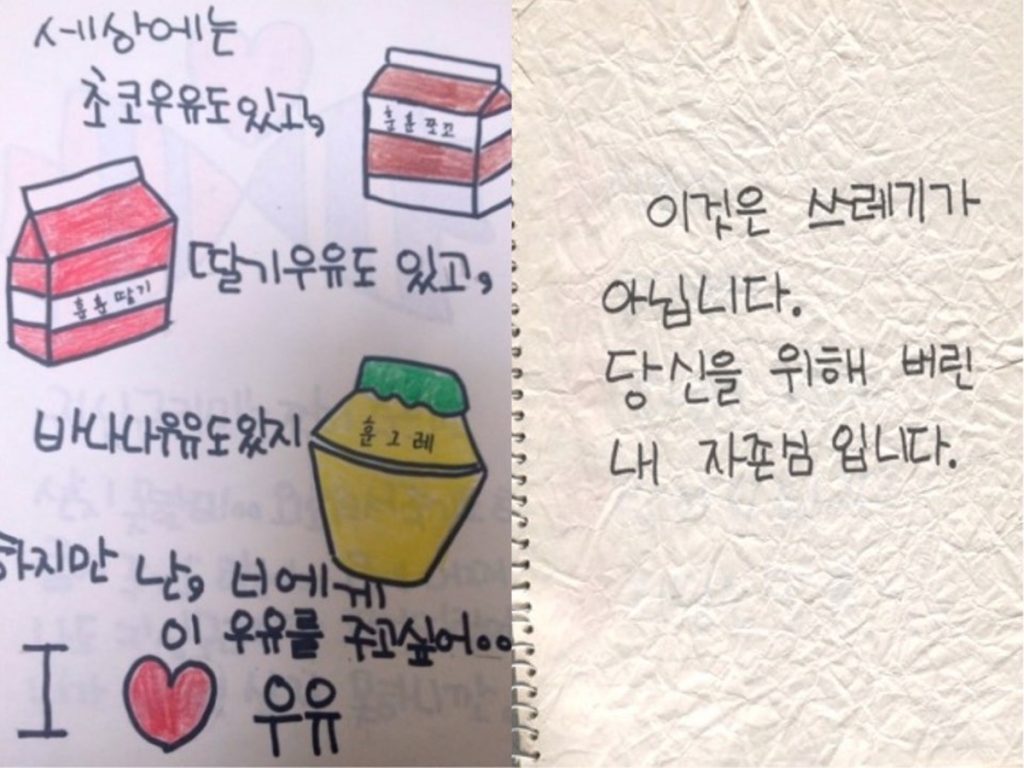 세상에는
초코우유도 있고,
훈훈쪼꼬
딸기우유도 있고,
훈훈딸기
바나나우유도 있지
훈그레
하지만 난, 너에게
이 우유를 주고싶어..
I ♥ 우유
이것은 쓰레기가
아닙니다.
당신을 위해 버린
내 자존심 입니다.